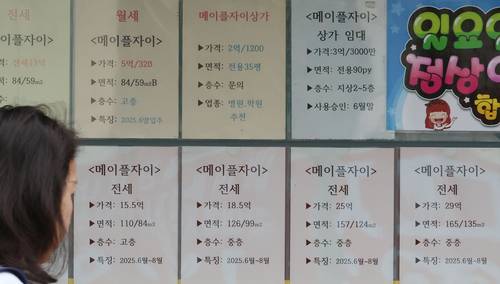 전세
가격: 전세13억
면적: 84/59㎡
월세
<메이플자이>
▶가격: 5억/320
▶면적: 84/59㎡B
▶층수: 고층
▶특징: 2025.6말입주
메이플자이상가
▶가격: 2억/1200
▶면적: 전용35평
▶층수: 문의
▶업종: 병원.학원
추천
<메이플자이>
상가 임대
▶가격:3억/3000만
▶면적: 전용90py
▶층수: 지상2~5층
▶사용승인: 6월말
일요일
정상영
<메이플자이>
전세
▶가격: 15.5억
▶면적: 110/84㎡
▶층수: 고층
▶특징: 2025.6월~8월
<메이플자이>
전세
▶가격: 18.5억
▶면적: 126/99㎡
▶층수: 중층
▶특징: 2025.6월~8월
<메이플자이>
전세
▶가격: 25억
▶면적: 157/124㎡
▶층수: 중층
▶특징: 2025.6월~8월
<메이플자이>
전세
▶가격: 29억
▶면적: 165/135㎡
▶층수: 중층
▶특징: 2025.6월~8월